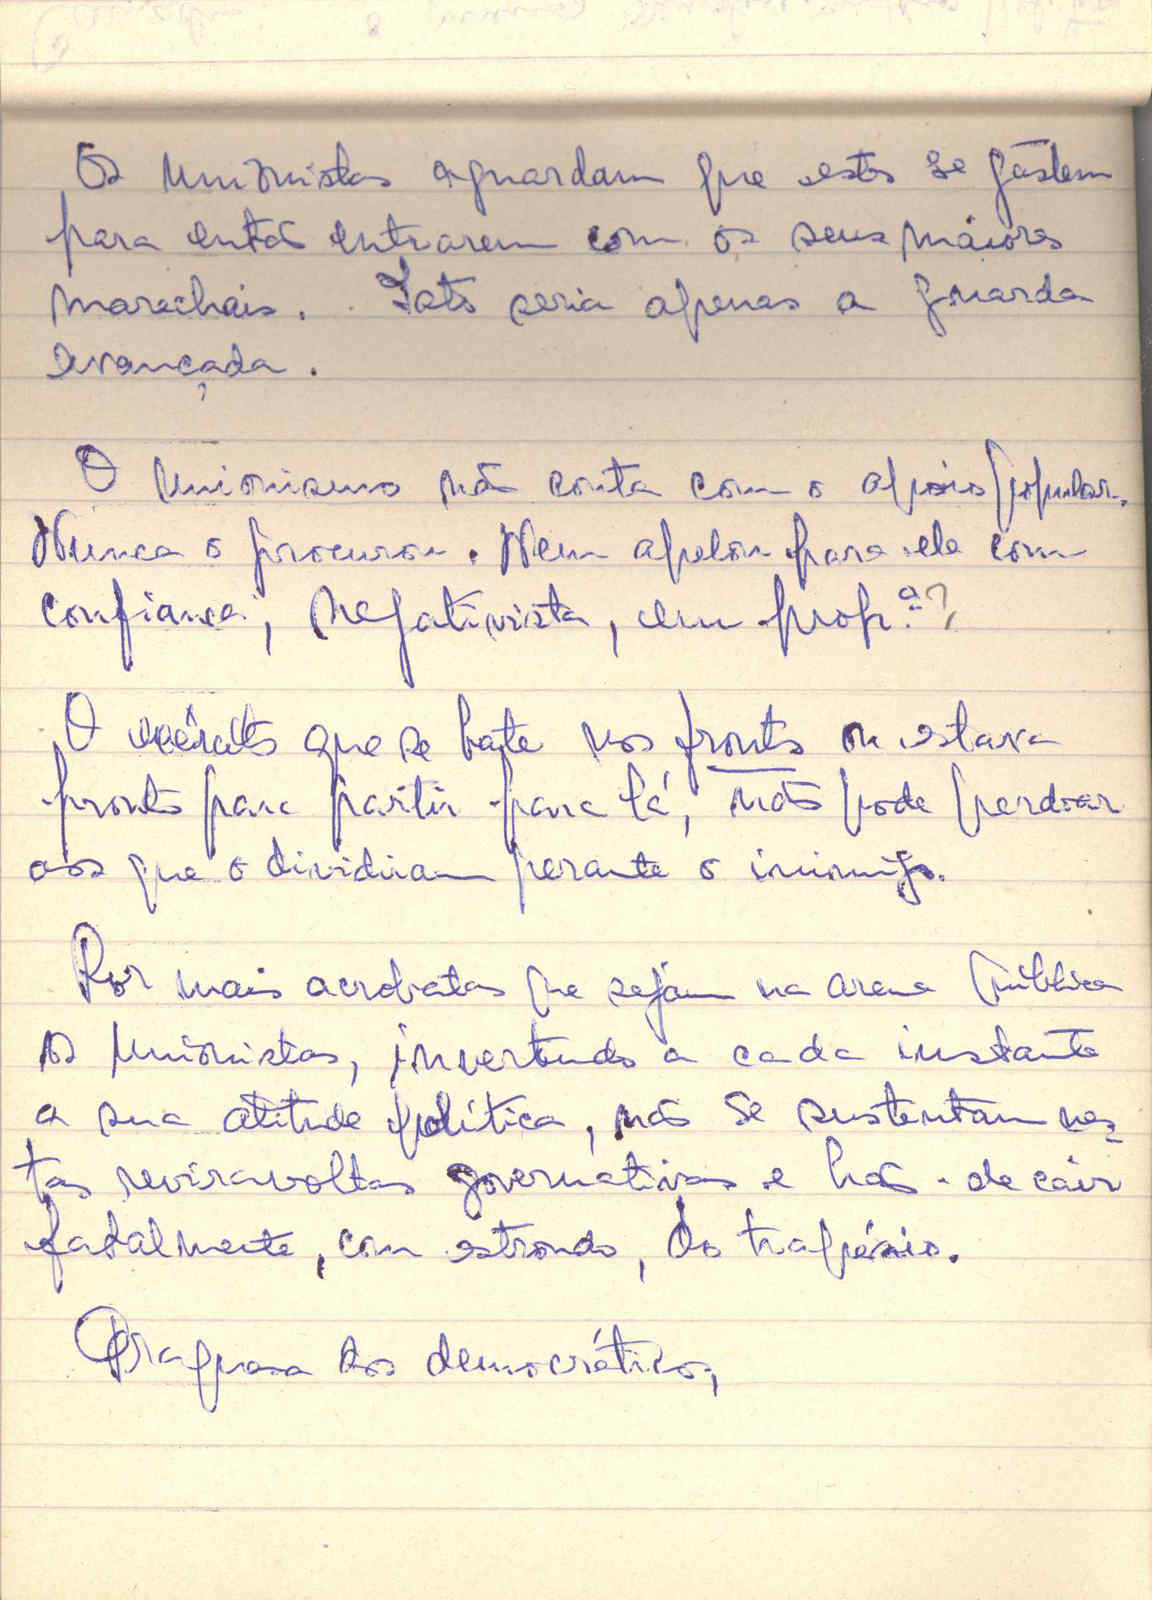 Os unionistas aguardam que estes se gastem
para então entrarem com os seus maiores
marechais. Isto seria apenas a guarda
avançada.
O unionismo não conta com o apoio popular.
Nunca o procurou. Nem apelou para ele com
confiança, negativista, em prop.ª?
O exército que se bate nos fronts ou estava
pronto para partir para lá, não pode perdoar
aos que o dividiram perante o inimigo.
Por mais acrobatas que sejam na arena pública
os unionistas, invertendo a cada instante
a sua atitude política, não se sustentam nes-
tas reviravoltas governativas e hão-de cair
fatalmente, com estrondo, do trapézio.
dos democráticos,